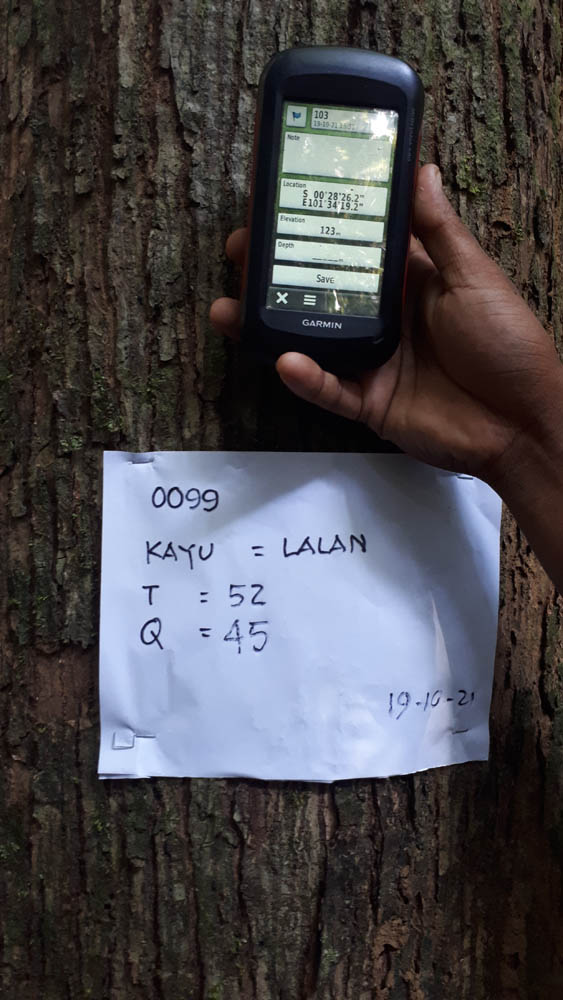 103
Note
Location
S 00°28'26.2"
E101°34'19.2"
Elevation
123m
Depth
Save
GARMIN
0099
KAYU = LALAN
T = 52
Q = 45
19-10-21